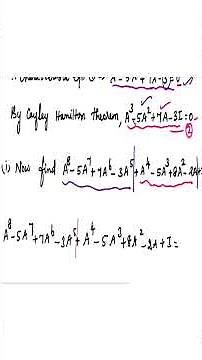 By Cayley Hamilton theorem, A³-5A²+7A-3I=0-
②
(i) Now find A⁸-5A⁷+7A⁶-3A⁵+A⁴-5A³+8A²-2A+
A⁸-5A⁷+7A⁶-3A⁵+A⁴-5A³+8A²-2A+I=